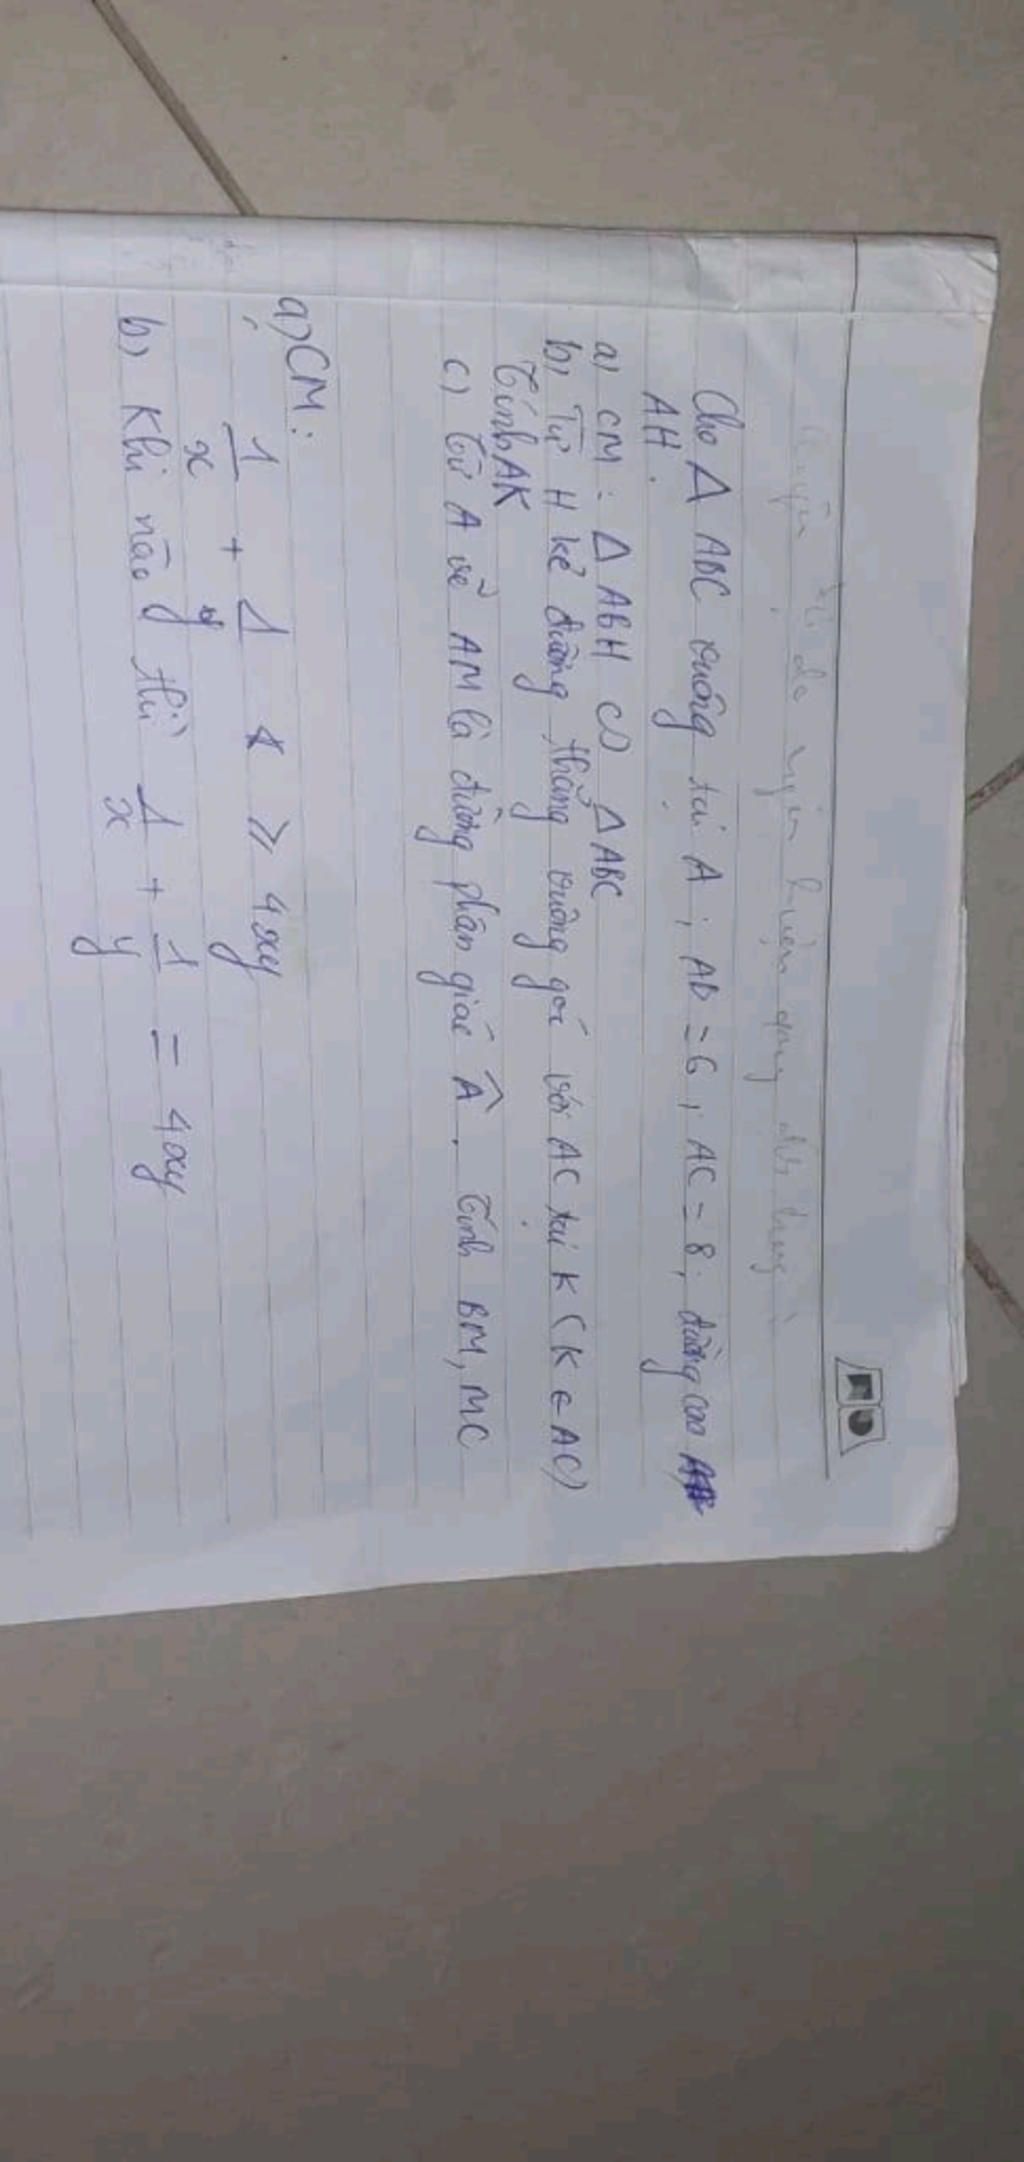 Cho Δ ABC vuông tại A; AB = 6, AC = 8, đường cao
AH.
a) CM: Δ ABH ∽ Δ ABC
b) Từ H kẻ đường thẳng vuông góc với AC tại K (K ∈ AC)
Tính AK
c) Từ A vẽ AM là đường phân giác Â. Tính BM, MC
a) CM:
1/x + 1/y ≥ 4xy
b) Khi nào thì 1/x + 1/y = 4xy